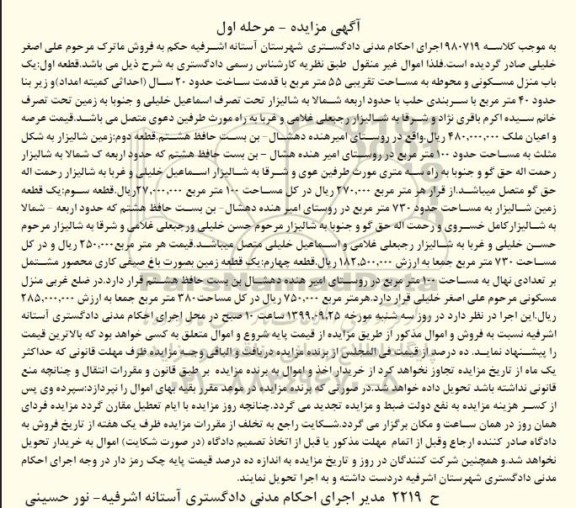 آگهی مزایده - مرحله اول
به موجب کلاسه ۹۸۰۷۱۹ اجرای احکام مدنی دادگستری شهرستان آستانه اشرفیه حکم به فروش ماترک مرحوم علی اصغر
خلیلی صادر گردیده است.فلذا اموال غیر منقول طبق نظریه کارشناس رسمی دادگستری به شرح ذیل می باشد.قطعه اول:یک
باب منزل مسکونی و محوطه به مساحت تقریبی ۵۵ متر مربع با قدمت ساخت حدود ۲۰ سال (احداثی کمیته امداد)و زیر بنا
حدود ۴۰ متر مربع با سربندی حلب با حدود اربعه شمالا به شالیزار تحت تصرف اسماعیل خلیلی و جنوبا به زمین تحت تصرف
خانم سیده اکرم باقری نژاد و شرقا به شالیزار رجبعلی غلامی و غربا به راه مورت طرفین دعوی متصل می باشد.قیمت عرصه
و اعیان ملک ۴۸۰,۰۰۰,۰۰۰ ریال.واقع در روستای امیرهنده دهشال - بن بست حافظ هشتم.قطعه دوم:زمین شالیزار به شکل
مثلث به مساحت حدود ۱۰۰ متر مربع در روستای امیر هنده هشال - بن بست حافظ هشتم که حدود اربعه ک شمالا به شالیزار
رحمت اله حق گو و جنوبا به راه سه متری مورت طرفین عوی و شرقا به شالیزار اسماعیل خلیلی و غربا به شالیزار رحمت اله
حق گو متصل میباشد.از قرار هر متر مربع ۲۷۰,۰۰۰ ریال در کل مساحت ۱۰۰ متر مربع ۲۷,۰۰۰,۰۰۰ریال.قطعه سوم:یک قطعه
زمین شالیزار به مساحت حدود ۷۳۰ متر مربع در روستای امیر هنده دهشال- بن بست حافظ هشتم که حدود اربعه - شمالا
به شالیزارکامل خسروی و رحمت اله حق گو و جنوبا به شالیزار مرحوم حسن خلیلی ورجبعلی غلامی و شرقا به شالیزار مرحوم
حسن خلیلی و غربا به شالیزار رجبعلی غلامی و اسماعیل خلیلی متصل میباشد.قیمت هر متر مربع۲۵۰,۰۰۰ ریال و در کل
مساحت ۷۳۰ متر مربع جمعا به ارزش ۱۸۲,۵۰۰,۰۰۰ ریال.قطعه چهارم:یک قطعه زمین بصورت باغ صیفی کاری محصور مشتمل
بر تعدادی نهال به مساحت ۱۰۰ متر مربع در روستای امیر هنده دهشال بن بست حافظ هشتم قرار دارد.در ضلع غربی منزل
مسکونی مرحوم علی اصغر خلیلی قرار دارد.هرمتر مربع ۷۵۰,۰۰۰ ریال در کل مساحت۳۸۰ متر مربع جمعا به ارزش ۲۸۵,۰۰۰,۰۰۰
ریال.این اجرا در نظر دارد در روز سه شنبه مورخه ۱۳۹۹.۰۹.۲۵ ساعت ۱۰ صبح در محل اجرای احکام مدنی دادگستری آستانه
اشرفیه نسبت به فروش و اموال مذکور از طریق مزایده از قیمت پایه شروع و اموال متعلق به کسی خواهد بود که بالاترین قیمت
را پیشنهاد نماید. ده درصد از قیمت فی المجلس از برنده مزایده دریافت و الباقی وجه مزایده ظرف مهلت قانونی که حداکثر
یک ماه از تاریخ مزایده تجاوز نخواهد کرد از خریدار اخذ و اموال به برنده مزایده بر طبق قانون و مقررات انتقال و چنانچه منع
قانونی نداشته باشد تحویل داده خواهد شد.در صورتی که برنده مزایده در موعد مقرر بقیه بهای اموال را نپردازد:سپرده وی پس
از کسر هزینه مزایده به نفع دولت ضبط و مزایده تجدید می گردد.چنانچه روز مزایده با ایام تعطیل مقارن گردد مزایده فردای
همان روز در همان ساعت و مکان برگزار می گردد.شکایت راجع به تخلف از مقررات مزایده ظرف یک هفته از تاریخ فروش به
دادگاه صادر کننده ارجاع وقبل از اتمام مهلت مذکور یا قبل از اتخاذ تصمیم دادگاه (در صورت شکایت) اموال به خریدار تحویل
نخواهد شد.و همچنین شرکت کنندگان در روز و تاریخ مزایده به اندازه ده درصد قیمت پایه چک رمز دار در وجه اجرای احکام
مدنی دادگستری شهرستان اشرفیه دردست داشته و به اجرا تحویل نمایند.
ح ۲۲۱۹ مدیر اجرای احکام مدنی دادگستری آستانه اشرفیه- نور حسینی